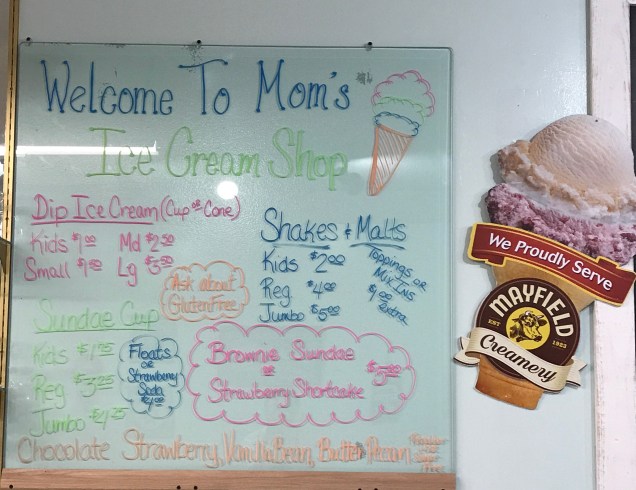 Welcome To Mom's
Ice Cream Shop
Dip Ice Cream (Cup or Cone)
Kids $1.00 Md $2.50
Small $1.50 Lg $3.50
Ask about
Gluten Free
Shakes & Malts
Kids $2.00
Reg $4.00
Jumbo $5.00
Toppings or
Mix Ins
$1.00
Extra
Sundae Cup
Kids $1.95
Reg $3.25
Jumbo $4.25
Floats
or
Strawberry
Soda
$4.00
Brownie Sundae
or
Strawberry Shortcake
$5.00
Chocolate Strawberry, Vanilla Bean, Butter Pecan
We Proudly Serve
MAYFIELD
EST 1923
Creamery